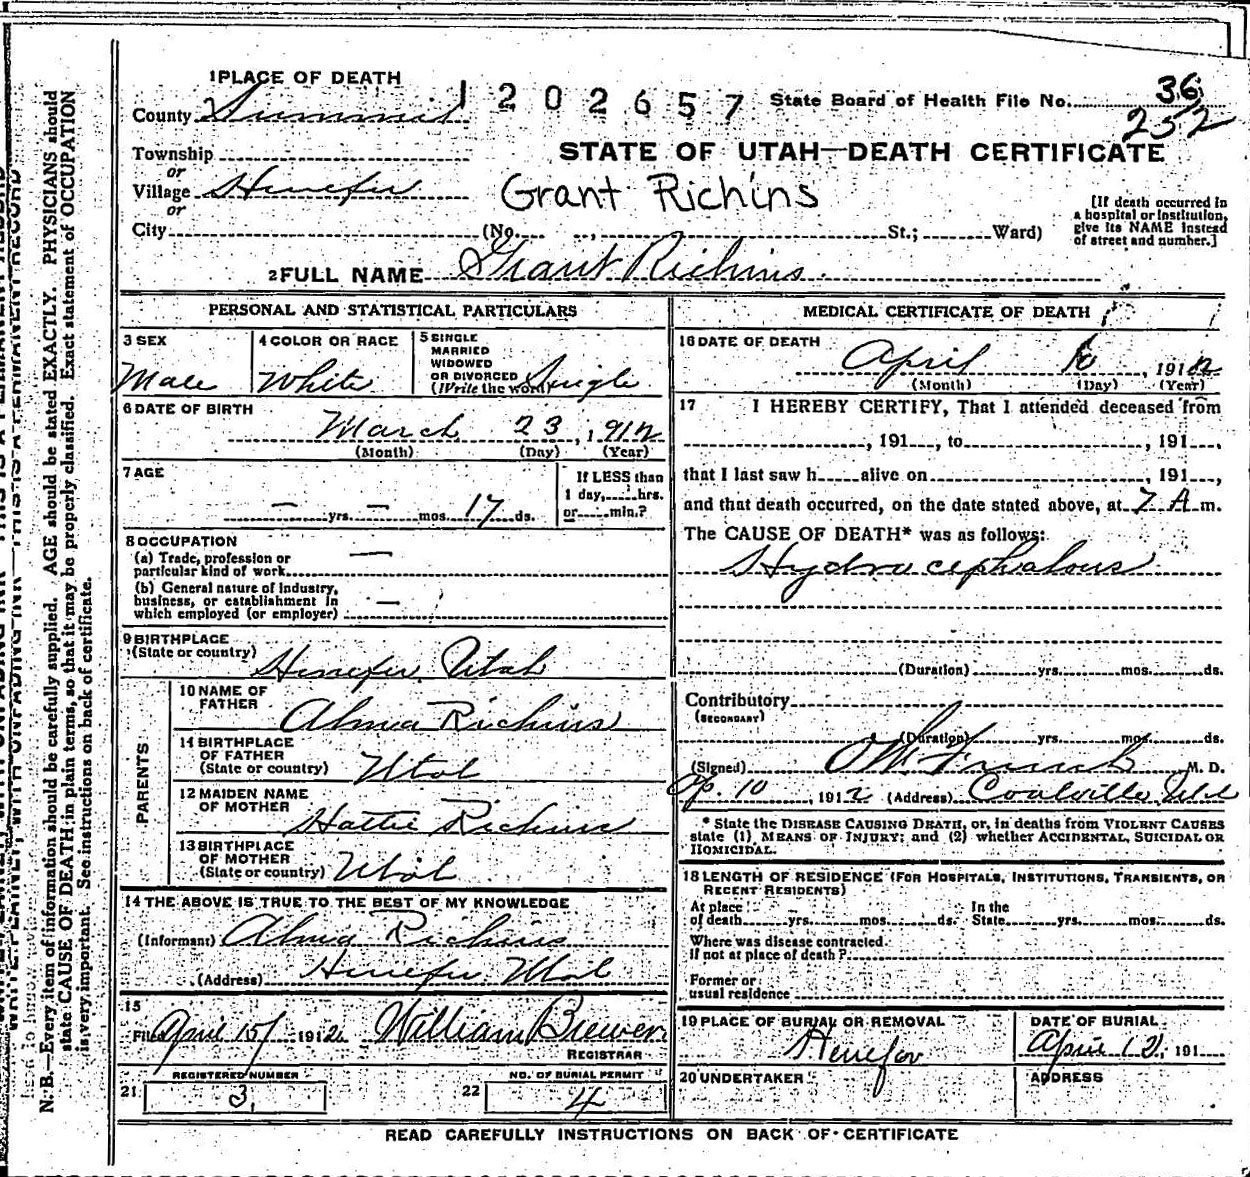 1 PLACE OF DEATH
1202657
State Board of Health File No. 36
252
County Summit
Township
or
Village Henefer
or
City (No. , St.; Ward)
STATE OF UTAH—DEATH CERTIFICATE
Grant Richins
[If death occurred in
a hospital or institution,
give its NAME instead
of street and number.]
2 FULL NAME Grant Richins
PERSONAL AND STATISTICAL PARTICULARS
3 SEX
Male
4 COLOR OR RACE
White
5 SINGLE
MARRIED
WIDOWED
OR DIVORCED
(Write the word) Single
6 DATE OF BIRTH
March 23, 1912
(Month) (Day) (Year)
7 AGE
— yrs. — mos. 17 ds.
If LESS than
1 day, hrs.
or min.?
8 OCCUPATION
(a) Trade, profession or
particular kind of work —
(b) General nature of industry,
business, or establishment in
which employed (or employer) —
9 BIRTHPLACE
(State or country) Henefer Utah
PARENTS
10 NAME OF
FATHER Alma Richins
11 BIRTHPLACE
OF FATHER
(State or country) Utah
12 MAIDEN NAME
OF MOTHER Hattie Richins
13 BIRTHPLACE
OF MOTHER
(State or country) Utah
14 THE ABOVE IS TRUE TO THE BEST OF MY KNOWLEDGE
(Informant) Alma Richins
(Address) Henefer Utah
15
Filed April 15, 1912 William Brewer
REGISTRAR
REGISTERED NUMBER
21 3
NO. OF BURIAL PERMIT
22 4
MEDICAL CERTIFICATE OF DEATH
16 DATE OF DEATH
April 10, 1912
(Month) (Day) (Year)
17 I HEREBY CERTIFY, That I attended deceased from
, 191 , to , 191 ,
that I last saw h alive on , 191 ,
and that death occurred, on the date stated above, at 7 A m.
The CAUSE OF DEATH* was as follows:
Hydrocephalous
(Duration) yrs. mos. ds.
Contributory
(SECONDARY)
(Duration) yrs. mos. ds.
(Signed) M. D.
Ap. 10, 1912 (Address) Coalville
* State the DISEASE CAUSING DEATH, or, in deaths from VIOLENT CAUSES
state (1) MEANS OF INJURY; and (2) whether ACCIDENTAL, SUICIDAL OR
HOMICIDAL.
18 LENGTH OF RESIDENCE (FOR HOSPITALS, INSTITUTIONS, TRANSIENTS, OR
RECENT RESIDENTS)
At place
of death yrs. mos. ds.
In the
State yrs. mos. ds.
Where was disease contracted
If not at place of death?
Former or
usual residence
19 PLACE OF BURIAL OR REMOVAL
Henefer
DATE OF BURIAL
April 12, 191
20 UNDERTAKER
ADDRESS
READ CAREFULLY INSTRUCTIONS ON BACK OF CERTIFICATE
N. B.—Every item of information should be carefully supplied. AGE should be stated EXACTLY. PHYSICIANS should
state CAUSE OF DEATH in plain terms, so that it may be properly classified. Exact statement of OCCUPATION
is very important. See instructions on back of certificate.